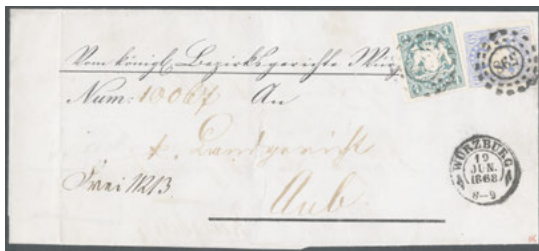 Vom königl. Bezirksgerichte Würz
Num: 10067 An
k. Landgericht
Aub.
WÜRZBURG
19
JUN.
1868
8–9